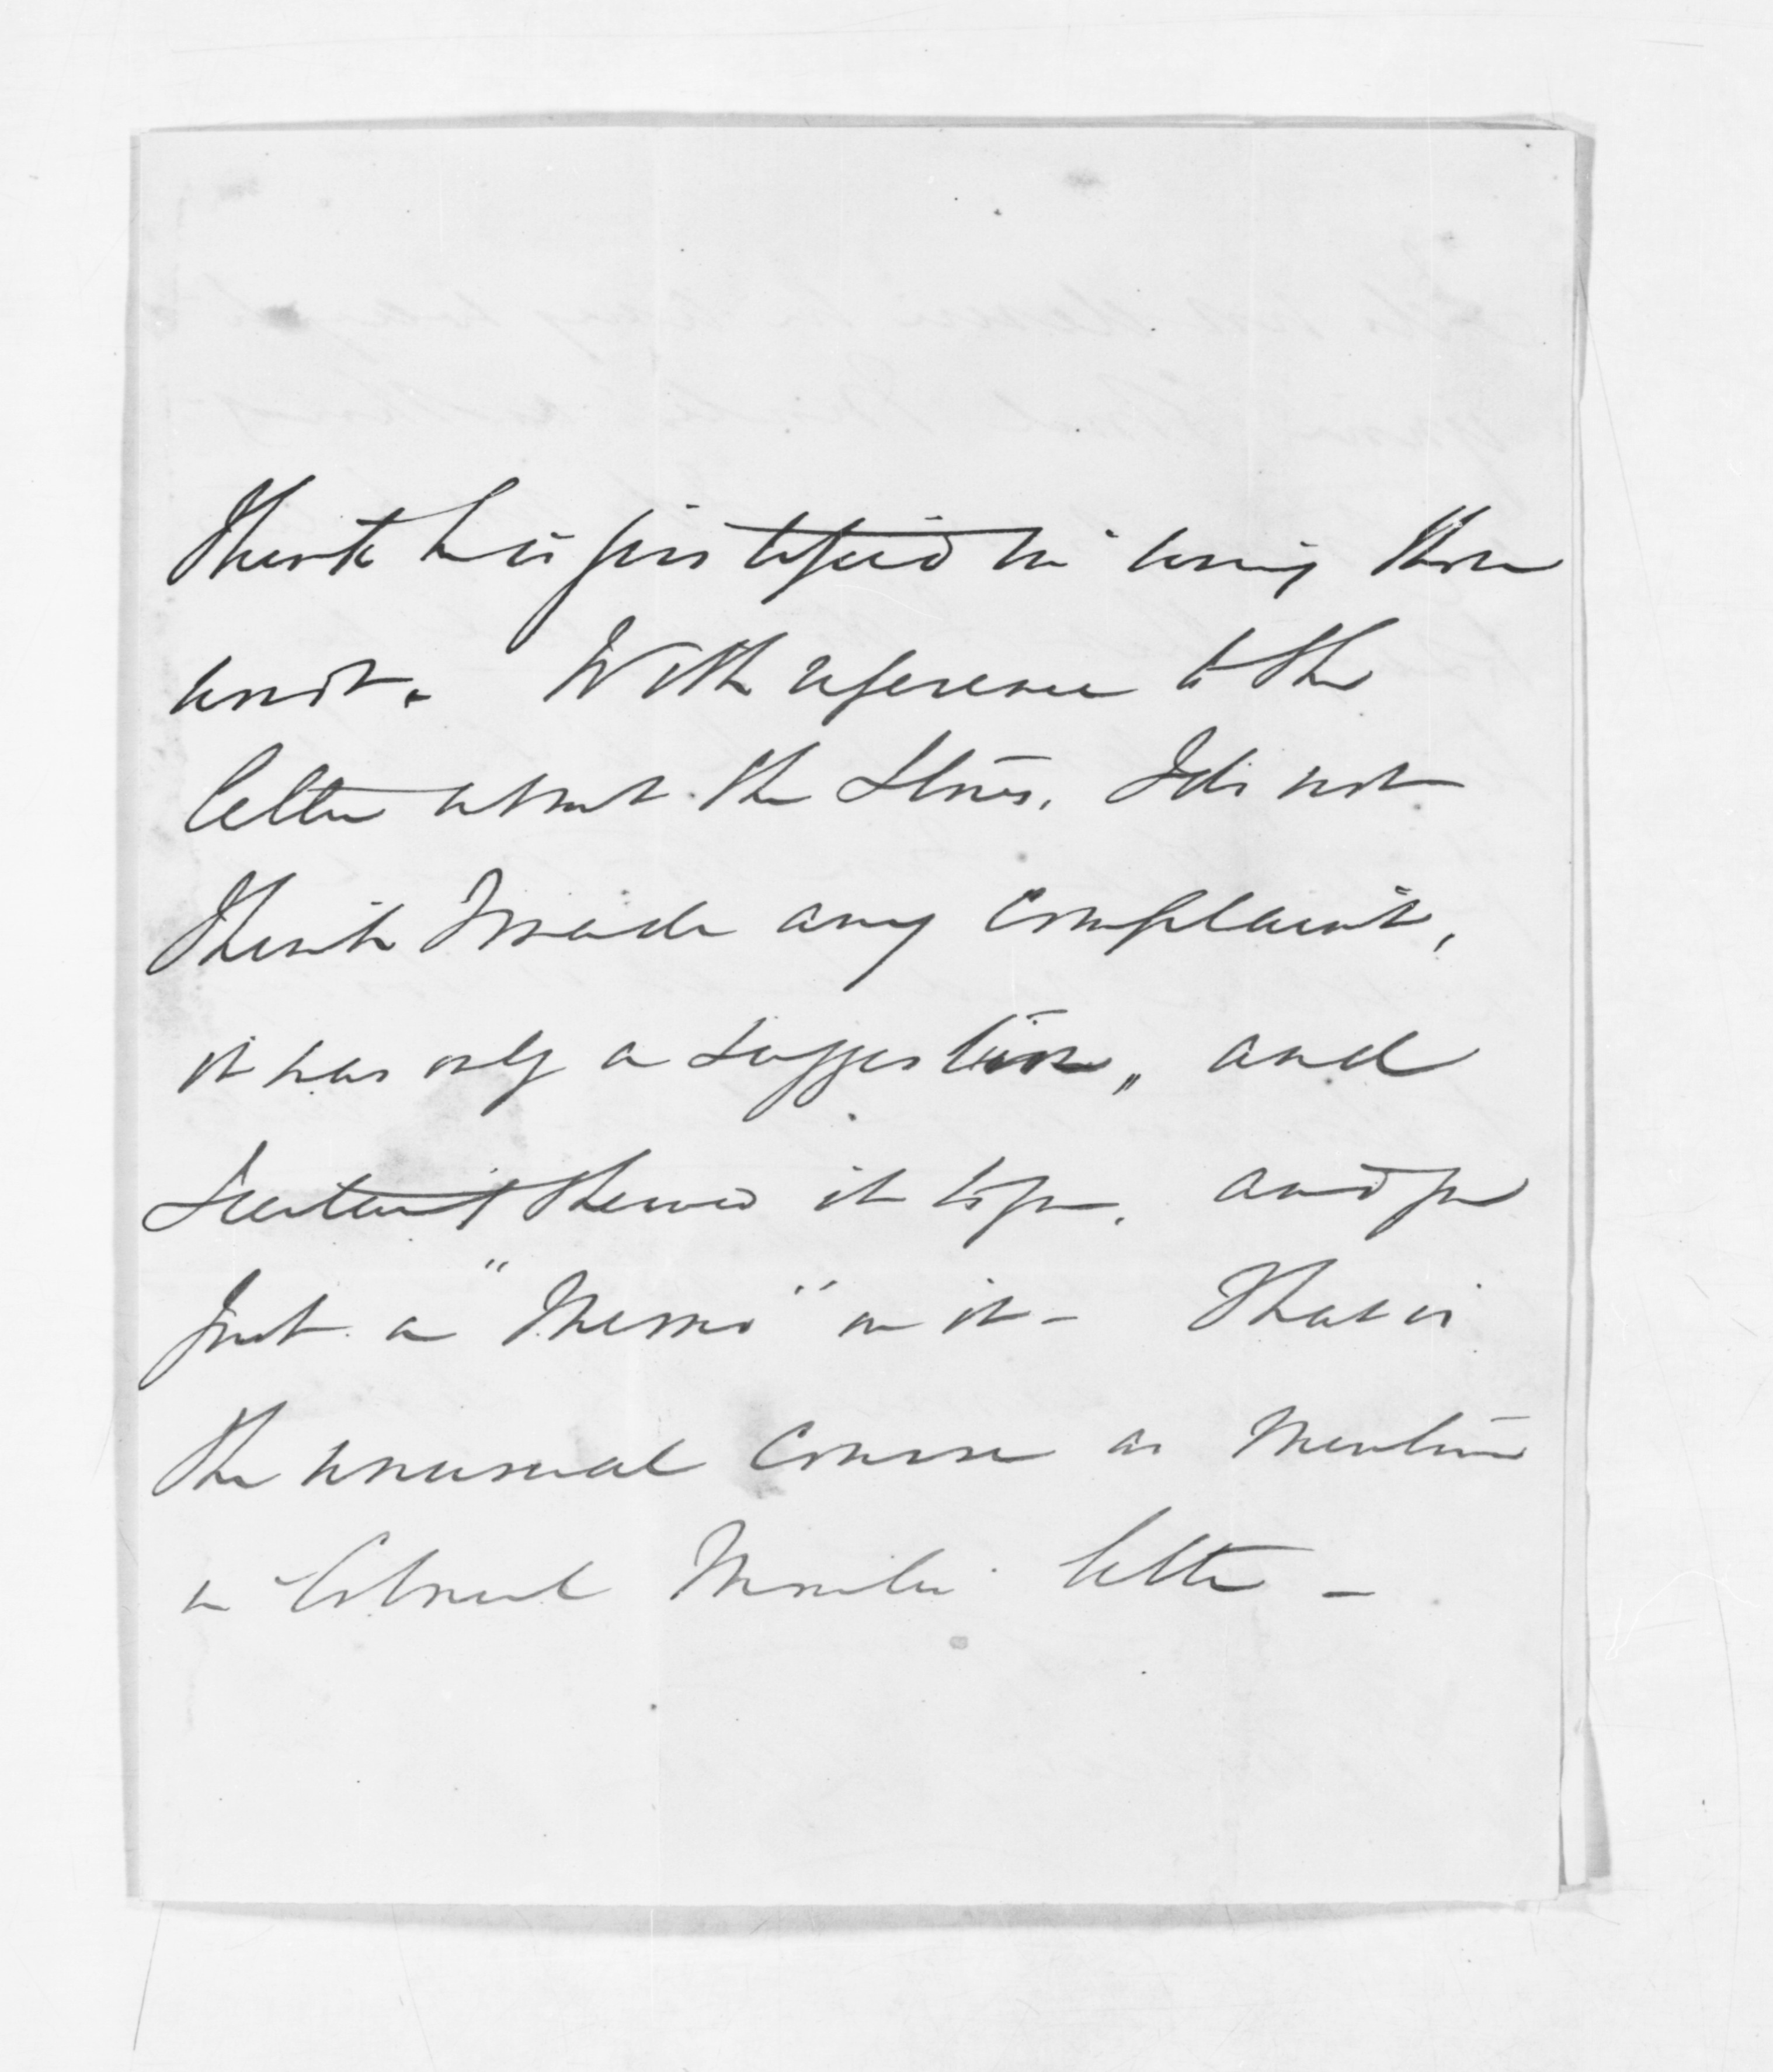 think he is justified in using those
words. With reference to the
letter about the Stores. I do not
think I made any complaint,
it was only a suggestion, and
it to you. and you
put a "Memo" on it - That is
the unusual course as mention
in Colonel letter -